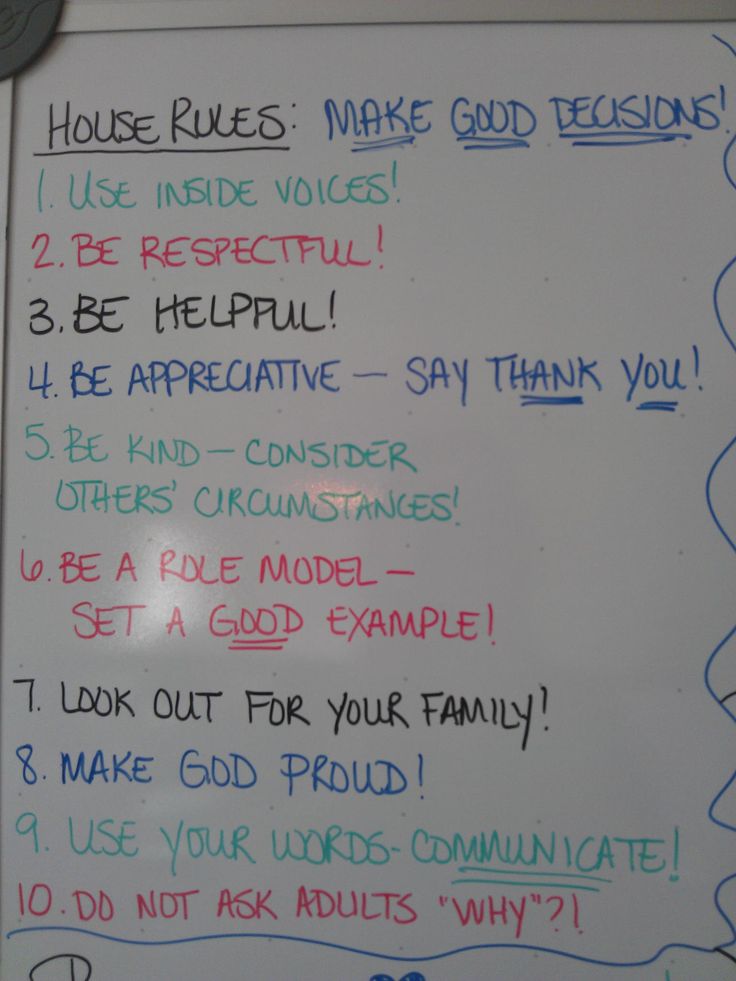 HOUSE RULES: MAKE GOOD DECISIONS!
1. USE INSIDE VOICES!
2. BE RESPECTFUL!
3. BE HELPFUL!
4. BE APPRECIATIVE — SAY THANK YOU!
5. BE KIND — CONSIDER
OTHERS' CIRCUMSTANCES!
6. BE A ROLE MODEL —
SET A GOOD EXAMPLE!
7. LOOK OUT FOR YOUR FAMILY!
8. MAKE GOD PROUD!
9. USE YOUR WORDS - COMMUNICATE!
10. DO NOT ASK ADULTS "WHY"?!